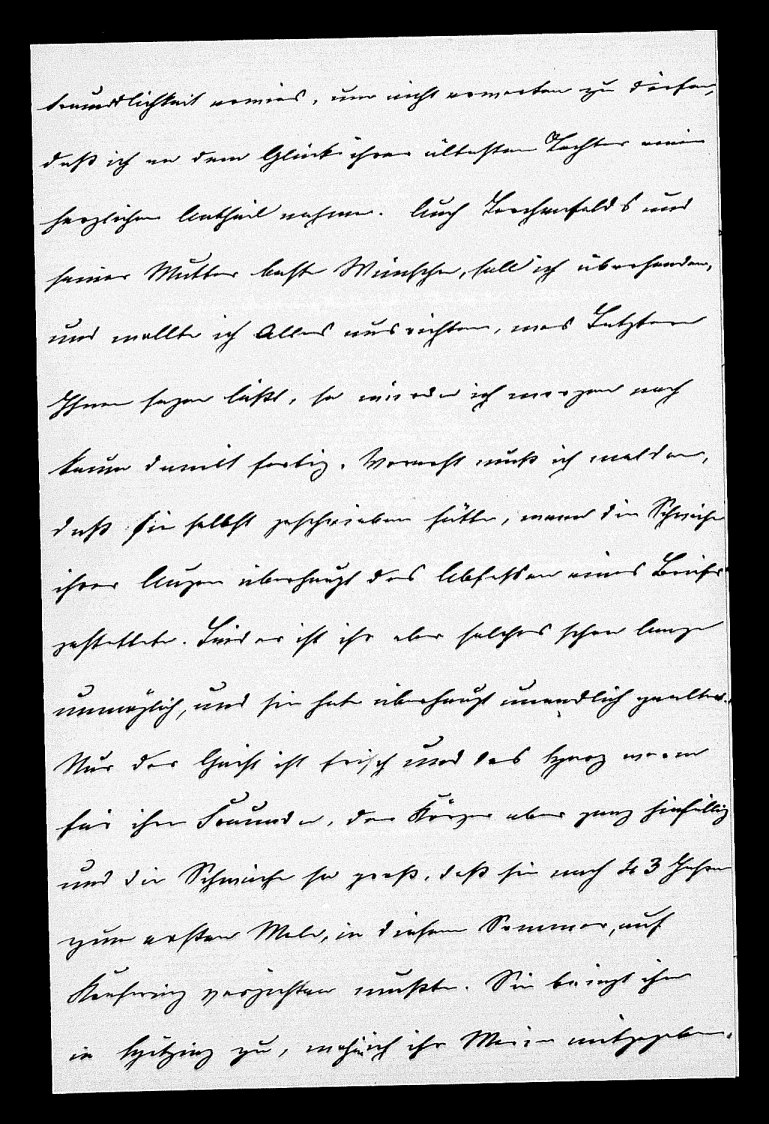 freundlichkeit erwies, um nicht erwarten zu dürfen,
daß ich an dem Glück ihrer ältesten Tochter einen
herzlichen Antheil nehme. Auch Lerchenfelds und
seiner Mutter beste Wünsche, soll ich übersenden,
und wollte ich Alles ausrichten, was Letztere
Ihnen sagen läßt, so würde ich morgen noch
kaum damit fertig. Vorerst muß ich melden,
daß sie selbst geschrieben hätte, wenn die Schwäche
ihrer Augen überhaupt das Abfassen eines Briefes
gestattete. Leider ist ihr aber solches schon lange
unmöglich, und sie hat überhaupt unendlich gealtert.
Nur der Geist ist frisch und das Herz warm
für ihre Freunde, der Körper aber ganz hinfällig
und die Schwäche so groß, daß sie nach 43 Jahren
zum ersten Male, in diesem Sommer, auf
verzichten mußte. Sie bringt ihn
in zu, wohin ich ihr Marie mitgegeben.